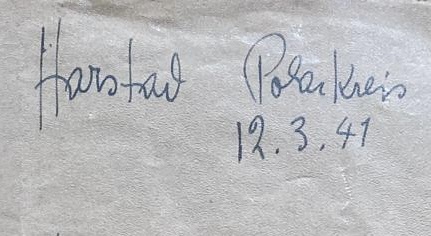 Harstad Polarkreis
12.3.41